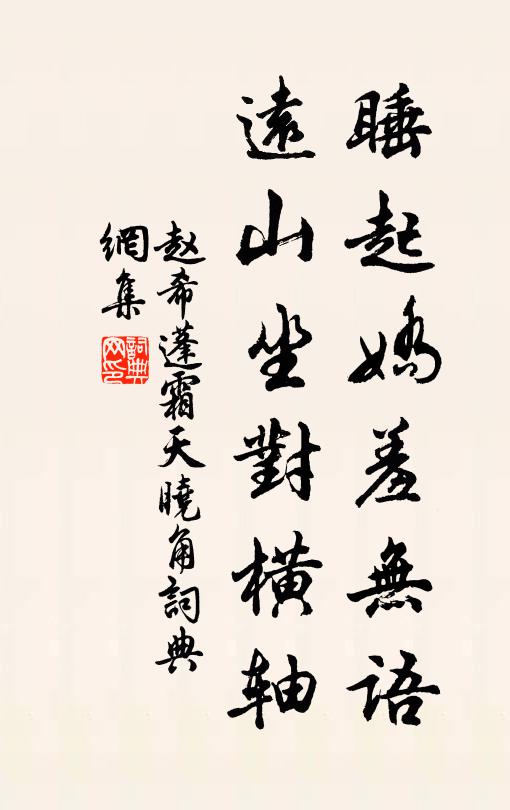 睡起嬌羞無語
遠山坐對橫轴
赵希蓬霜天曉角詞典
網集
詞典网印